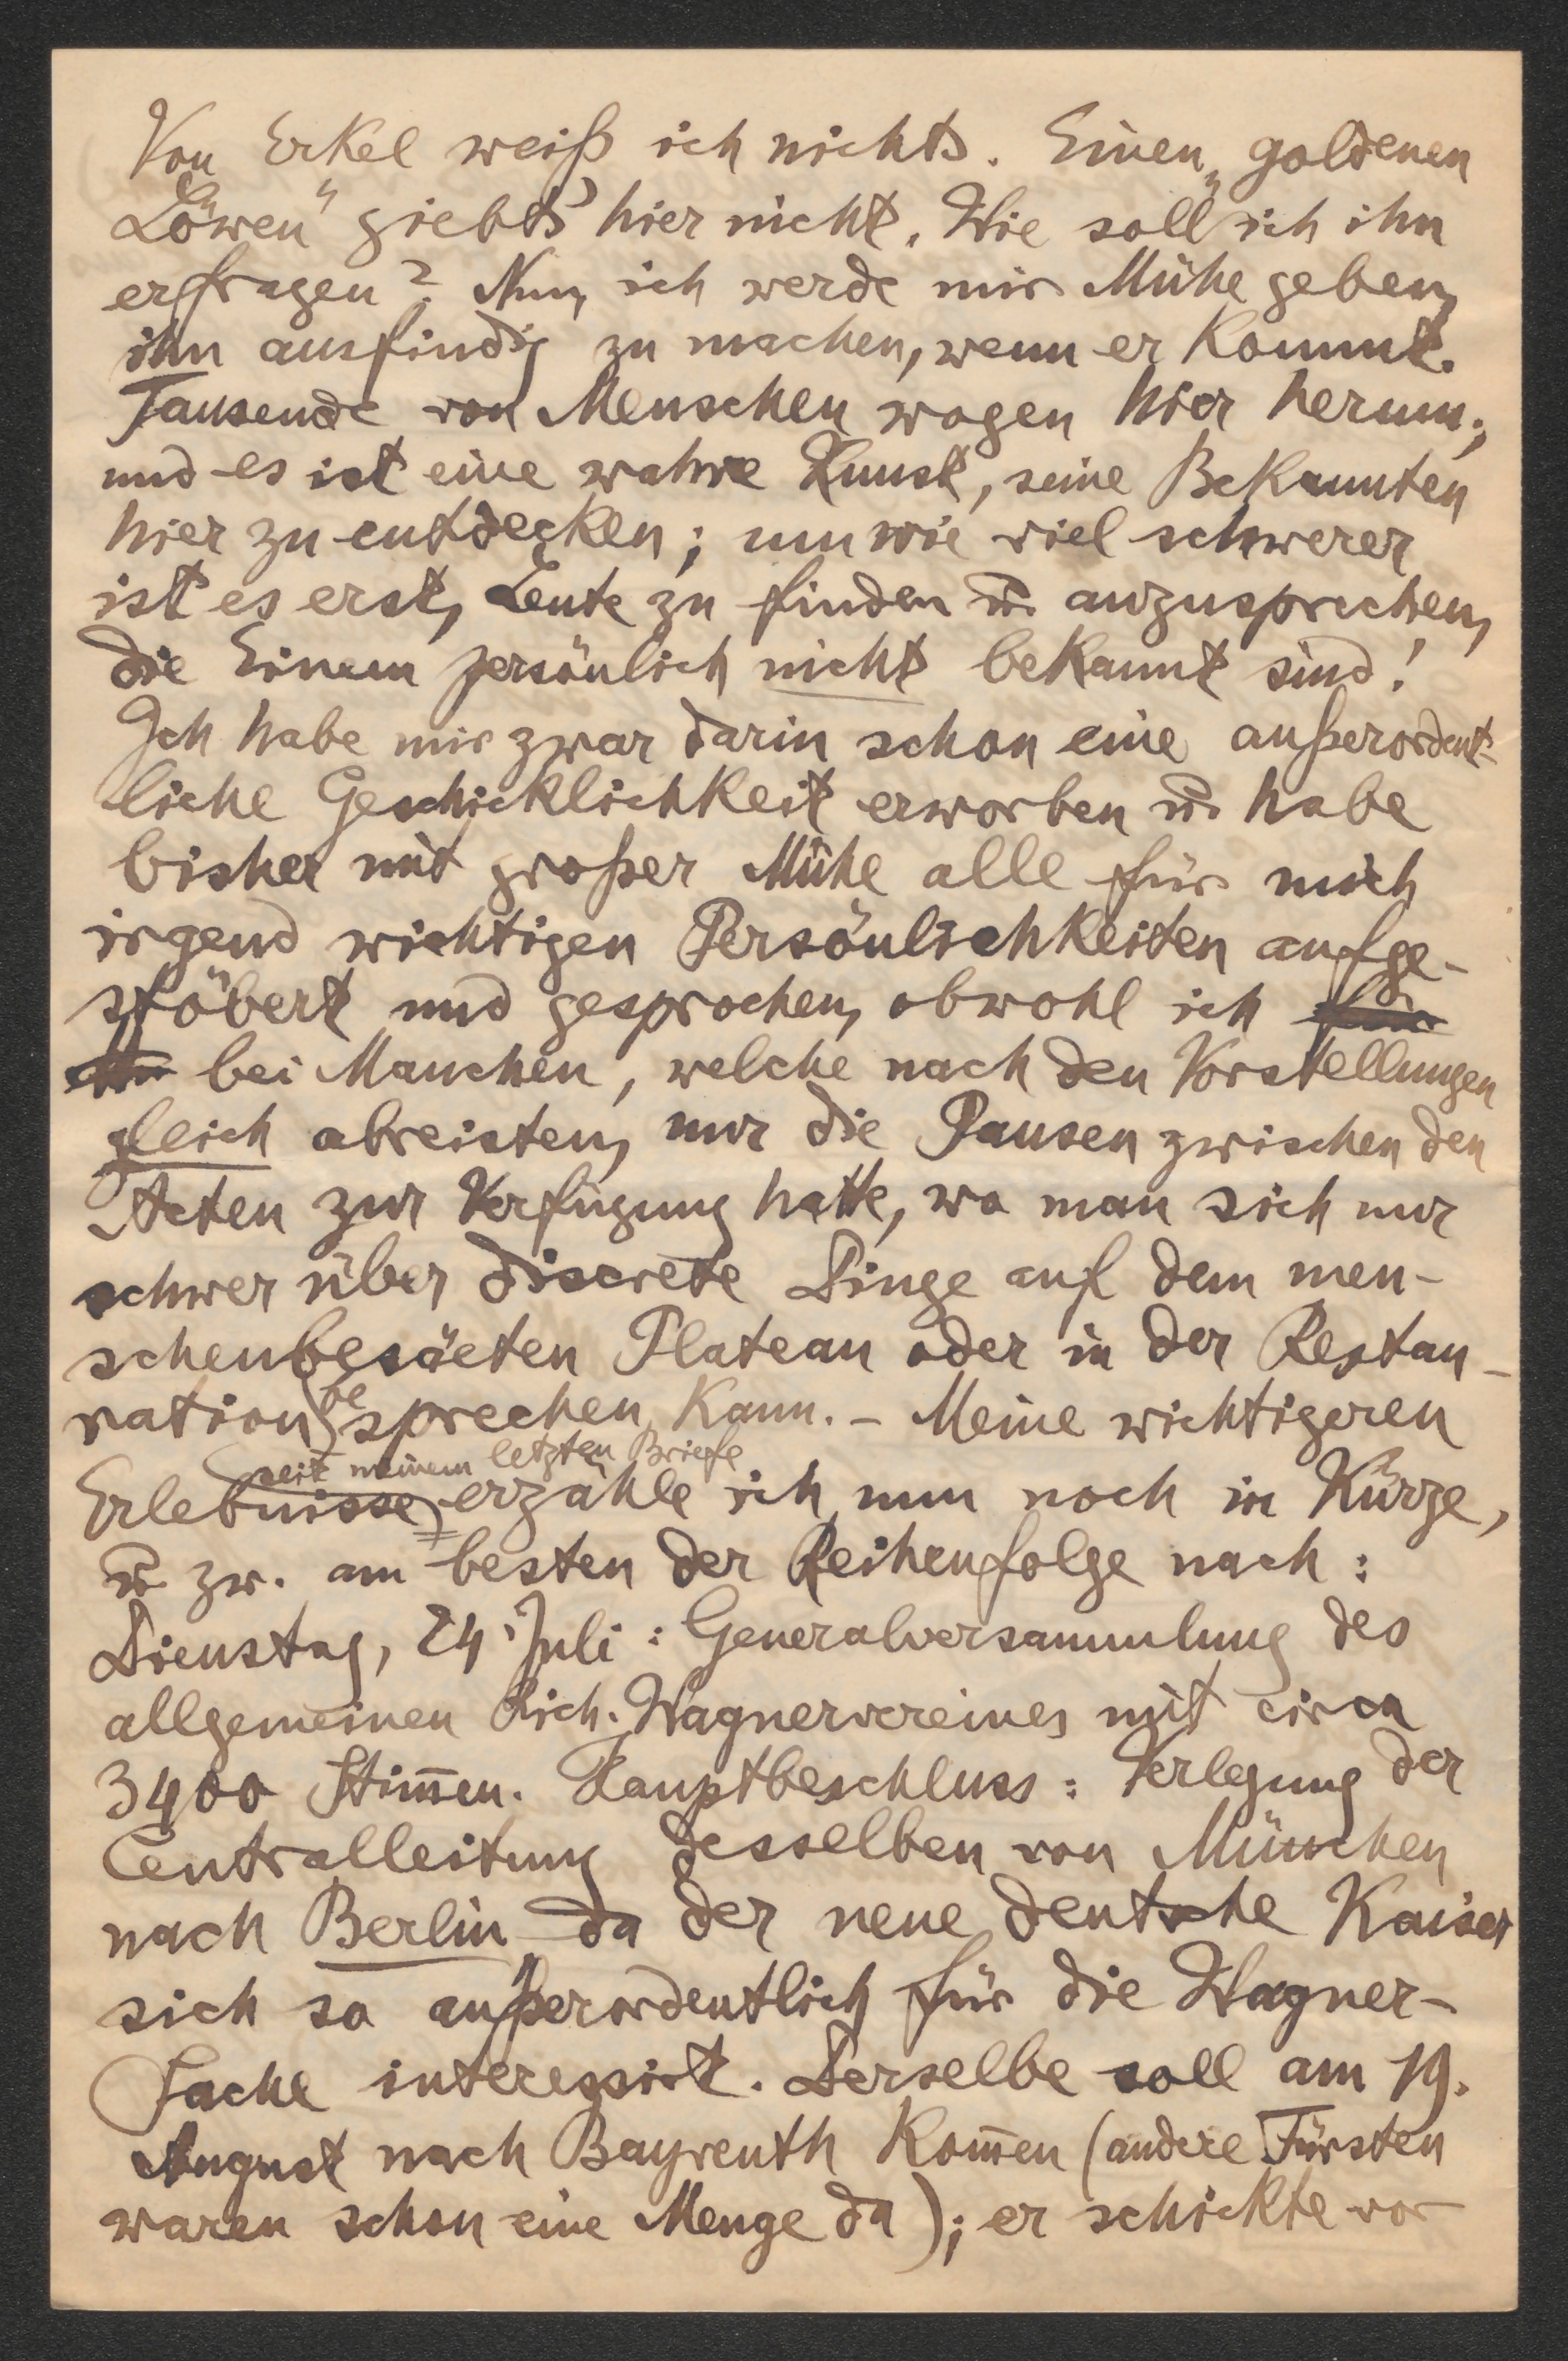 Von Erkel weiß ich nichts. Einen „goldenen
Löwen" giebts hier nicht. Wie soll ich ihn
erfragen? Nun, ich werde mir Mühe geben,
ihn ausfindig zu machen, wenn er kommt.
Tausende von Menschen wogen hier herum;
und es ist eine wahre Kunst, seine Bekannten
hier zu entdecken; um wie viel schwerer
ist es erst, Leute zu finden u. anzusprechen,
die Einem persönlich nicht bekannt sind!
Ich habe mir zwar darin schon eine außerordent-
liche Geschicklichkeit erworben u. habe
bisher mit großer Mühe alle für mich
irgend wichtigen Persönlichkeiten aufge-
stöbert und gesprochen, obwohl ich
bei Manchen, welche nach den Vorstellungen
gleich abreisten, nur die Pausen zwischen den
Acten zur Verfügung hatte, wo man sich nur
schwer über discrete Dinge auf dem men-
schenbesäeten Plateau oder in der Restau-
ration besprechen kann. – Meine wichtigeren
Erlebnisse seit meinem letzten Briefe erzähle ich nun noch in Kürze,
u. zw. am besten der Reihenfolge nach:
Dienstag, 24. Juli: Generalversammlung des
allgemeinen Rich. Wagnervereines mit circa
3400 Stim̄en. Hauptbeschluss: Verlegung der
Centralleitung desselben von München
nach Berlin, da der neue deutsche Kaiser
sich so außerordentlich für die Wagner-
Sache interessirt. Derselbe soll am 19.
August nach Bayreuth kom̄en (andere Fürsten
waren schon eine Menge da); er schickte vor